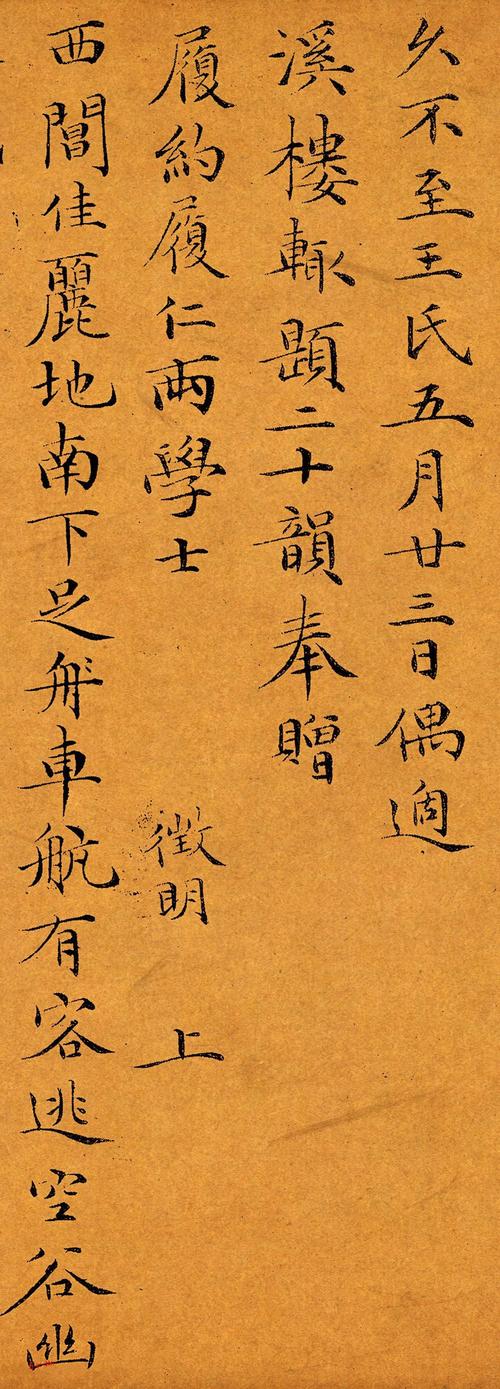 久不至王氏五月廿三日偶過
溪樓輙題二十韻奉贈
履約履仁兩學士 徵明 上
西閶佳麗地南下足舟車航有客逃空谷幽